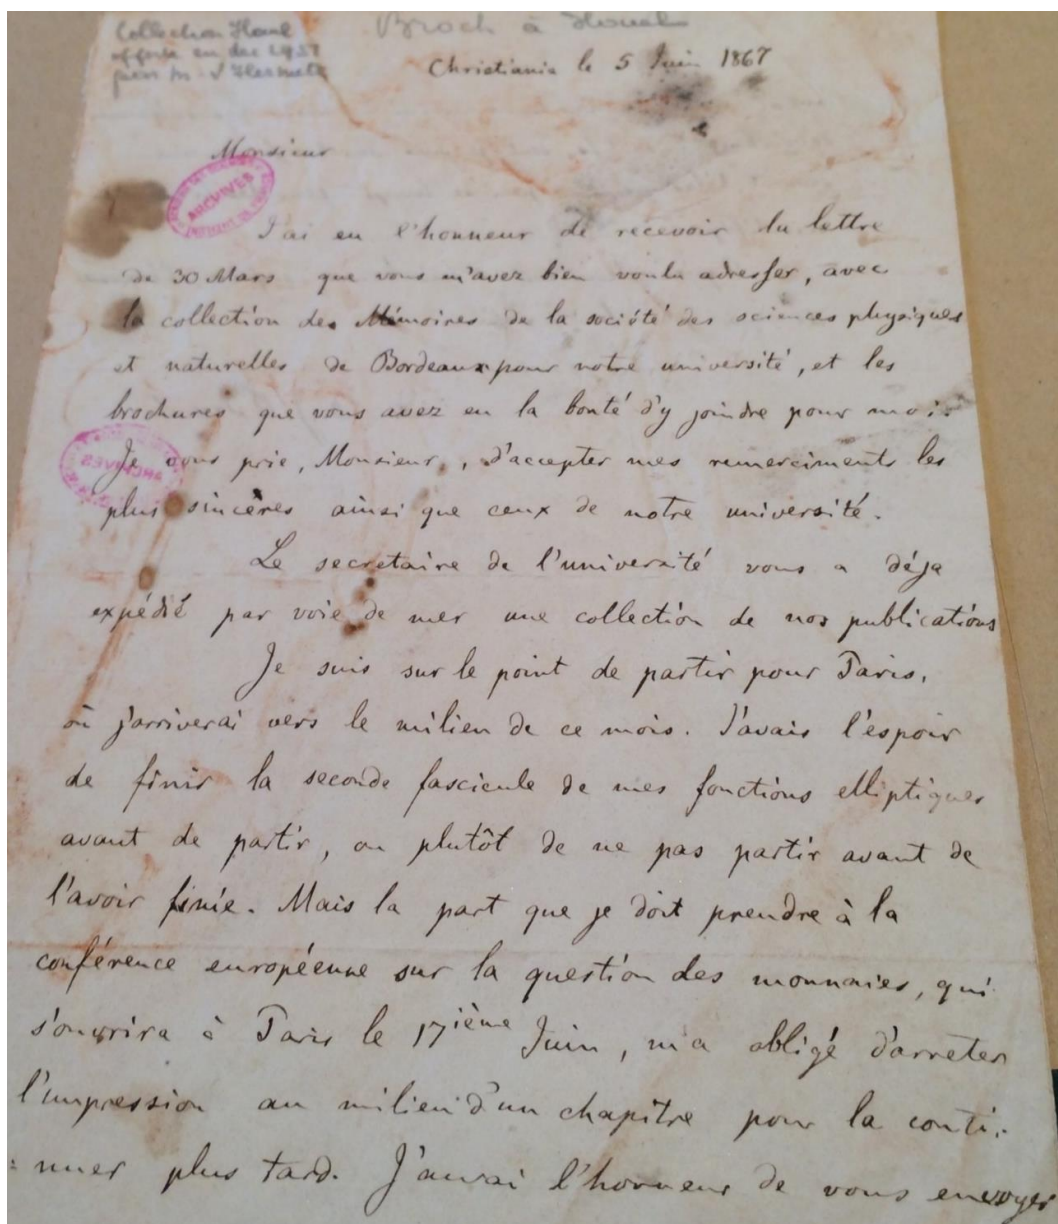 Collection Houel
offerte en déc 1957
par M.
Broch à Houel
Christiania le 5 Juin 1867
Monsieur
ARCHIVES
J'ai eu l'honneur de recevoir la lettre
de 30 Mars que vous m'avez bien voulu adresser, avec
la collection des Mémoires de la société des sciences physiques
et naturelles de Bordeaux pour notre université, et les
brochures que vous avez eu la bonté d'y joindre pour moi.
ARCHIVES
Je vous prie, Monsieur, d'accepter mes remerciments les
plus sincères ainsi que ceux de notre université.
Le secretaire de l'université vous a déja
expédié par voie de mer une collection de nos publications
Je suis sur le point de partir pour Paris,
où j'arriverai vers le milieu de ce mois. J'avais l'espoir
de finir la seconde fascicule de mes fonctions elliptiques
avant de partir, ou plutôt de ne pas partir avant de
l'avoir finie. Mais la part que je doit prendre à la
conférence européenne sur la question des monnaies, qui
s'ouvrira à Paris le 17ième Juin, m'a obligé d'arreter
l'impression au milieu d'un chapitre pour la conti-
nuer plus tard. J'aurai l'honneur de vous envoyer